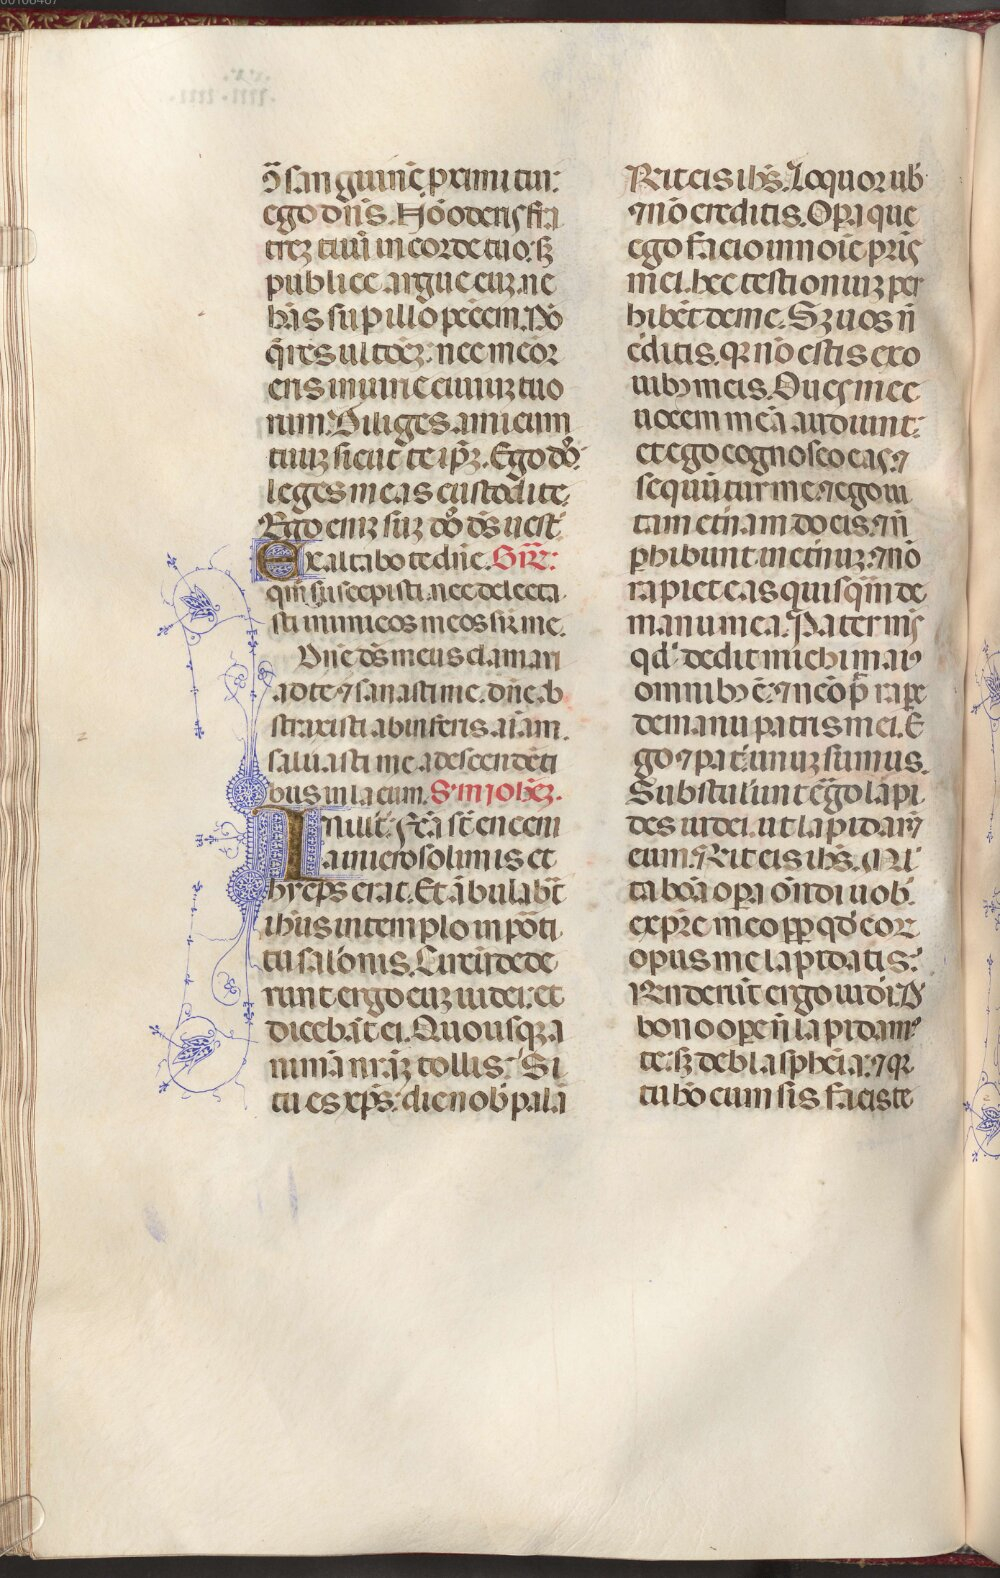 ↄ̃ sanguinē proximi tui:
ego dn̄s. Nō oderis fra
trez tuū in corde tuo: sꝫ
publice argue euz. ne
hēas suꝑ illo pccm̄. Nō
q̄res ultōez: nec meor
eris iniurie ciuiuz tuo
rum. Diliges amicum
tuuz sicut te ip̄z. Ego dn̄s.
leges meas custodite.
Ego enīz suz dn̄s ds̄ uest̄.
Exaltabo te dn̄e. Gr̄.
qm̄ suscepisti. nec delecta
sti inimicos meos sup̄ me.
Dn̄e ds̄ meus clamaui
ad te ⁊ sanasti me. dn̄e ab
straxisti ab inferis aīam.
saluasti me a descendēti
bus in lacum. S. m̄ ioh̄ez.
In illīt. Fc̄a st̄ encēni
a in ierosolimis et
hyeps erat. Et ābulab̄t
ihūs in templo in pōti
cu salōmis. Circūdede
runt ergo euz iudei: et
dicebāt ei. Quousqꝫ a
nimā nr̄āz tollis? Si
tu es xp̄s: dic nob̄ palā
R̄it eis ih̄s. Loquor ub̄
⁊ nō creditis. Oꝑa que
ego facio in noīe pr̄is
mei. hec testioniuz per
hibēt de me. Sꝫ uos n̄
c̄ditis. qꝛ nō estis ex o
uibꝫ meis. Oues mee
uocem meā audiunt:
et ego cognosco eas: ⁊
sequūtur me: ⁊ ego ui
tam et̄nam do eis. ⁊ n̄
ꝑhibunt in et̄nuz: ⁊ nō
rapiet eas quisq̄m de
manu mea. Pater mꝰ
qd̄ dedit michi maiꝰ
omnibꝫ ē: ⁊ nēo p̄t raꝑe
de manu patris mei. E
go ⁊ pat̄ unuz sumus.
Substulūnt ēgo lapi
des iudei. ut lapidarēt
eum. R̄it eis ih̄s. Mul̄
ta bōa oꝑa ōndi uob̄
ex pr̄e meo ꝓp̄ qd̄ eoꝝ
opus me lapidatis?
R̄nderūt ergo iudei. D̄
bono oꝑe n̄ lapidamꝰ
te: sꝫ de blasphēia: ⁊ qꝛ
tu hō cum sis facis te